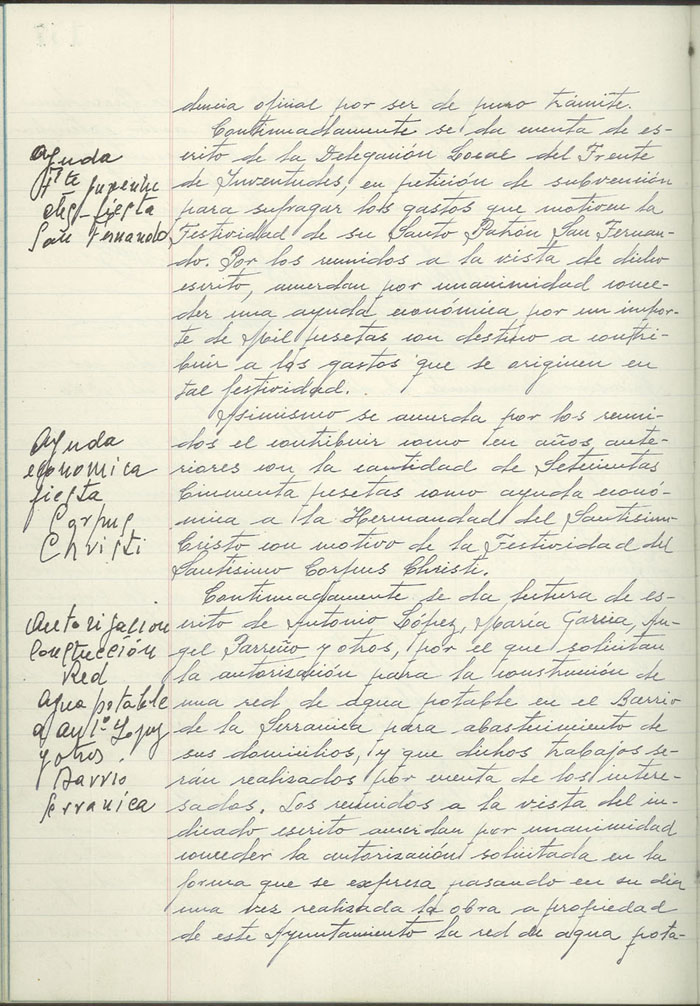 dencia oficial por ser de puro trámite.
Continuadamente se da cuenta de es-
Ayuda
Fte juvent
des-fiesta
San Fernando
crito de la Delegación Local del Frente
de Juventudes, en petición de subvención
para sufragar los gastos que motiven la
Festividad de su Santo Patrón San Fernan-
do. Por los reunidos a la vista de dicho
escrito, acuerdan por unanimidad conce-
der una ayuda económica por un impor-
te de Mil pesetas con destino a contri-
buir a los gastos que se originen en
tal festividad.
Asimismo se acuerda por los reuni-
Ayuda
economica
fiesta
Corpus
Christi
dos el contribuir como en años ante-
riores con la cantidad de Setecientas
Cincuenta pesetas como ayuda econó-
mica a la Hermandad del Santisimo
Cristo con motivo de la Festividad del
Santísimo Corpus Christi.
Continuadamente se da lectura de es-
Autorización
construcción
red
agua potable
a Antº Lopez
y otros.
Barrio
Serranica
crito de Antonio López, María García, An-
gel Parreño y otros, por el que solicitan
la autorización para la construcción de
una red de agua potable en el Barrio
de la Serranica para abastecimiento de
sus domicilios, y que dichos trabajos se-
rán realizados por cuenta de los intere-
sados. Los reunidos a la vista del in-
dicado escrito acuerdan por unanimidad
conceder la autorización solicitada en la
forma que se expresa pasando en su dia
una vez realizada la obra a propiedad
de este Ayuntamiento la red de agua pota-